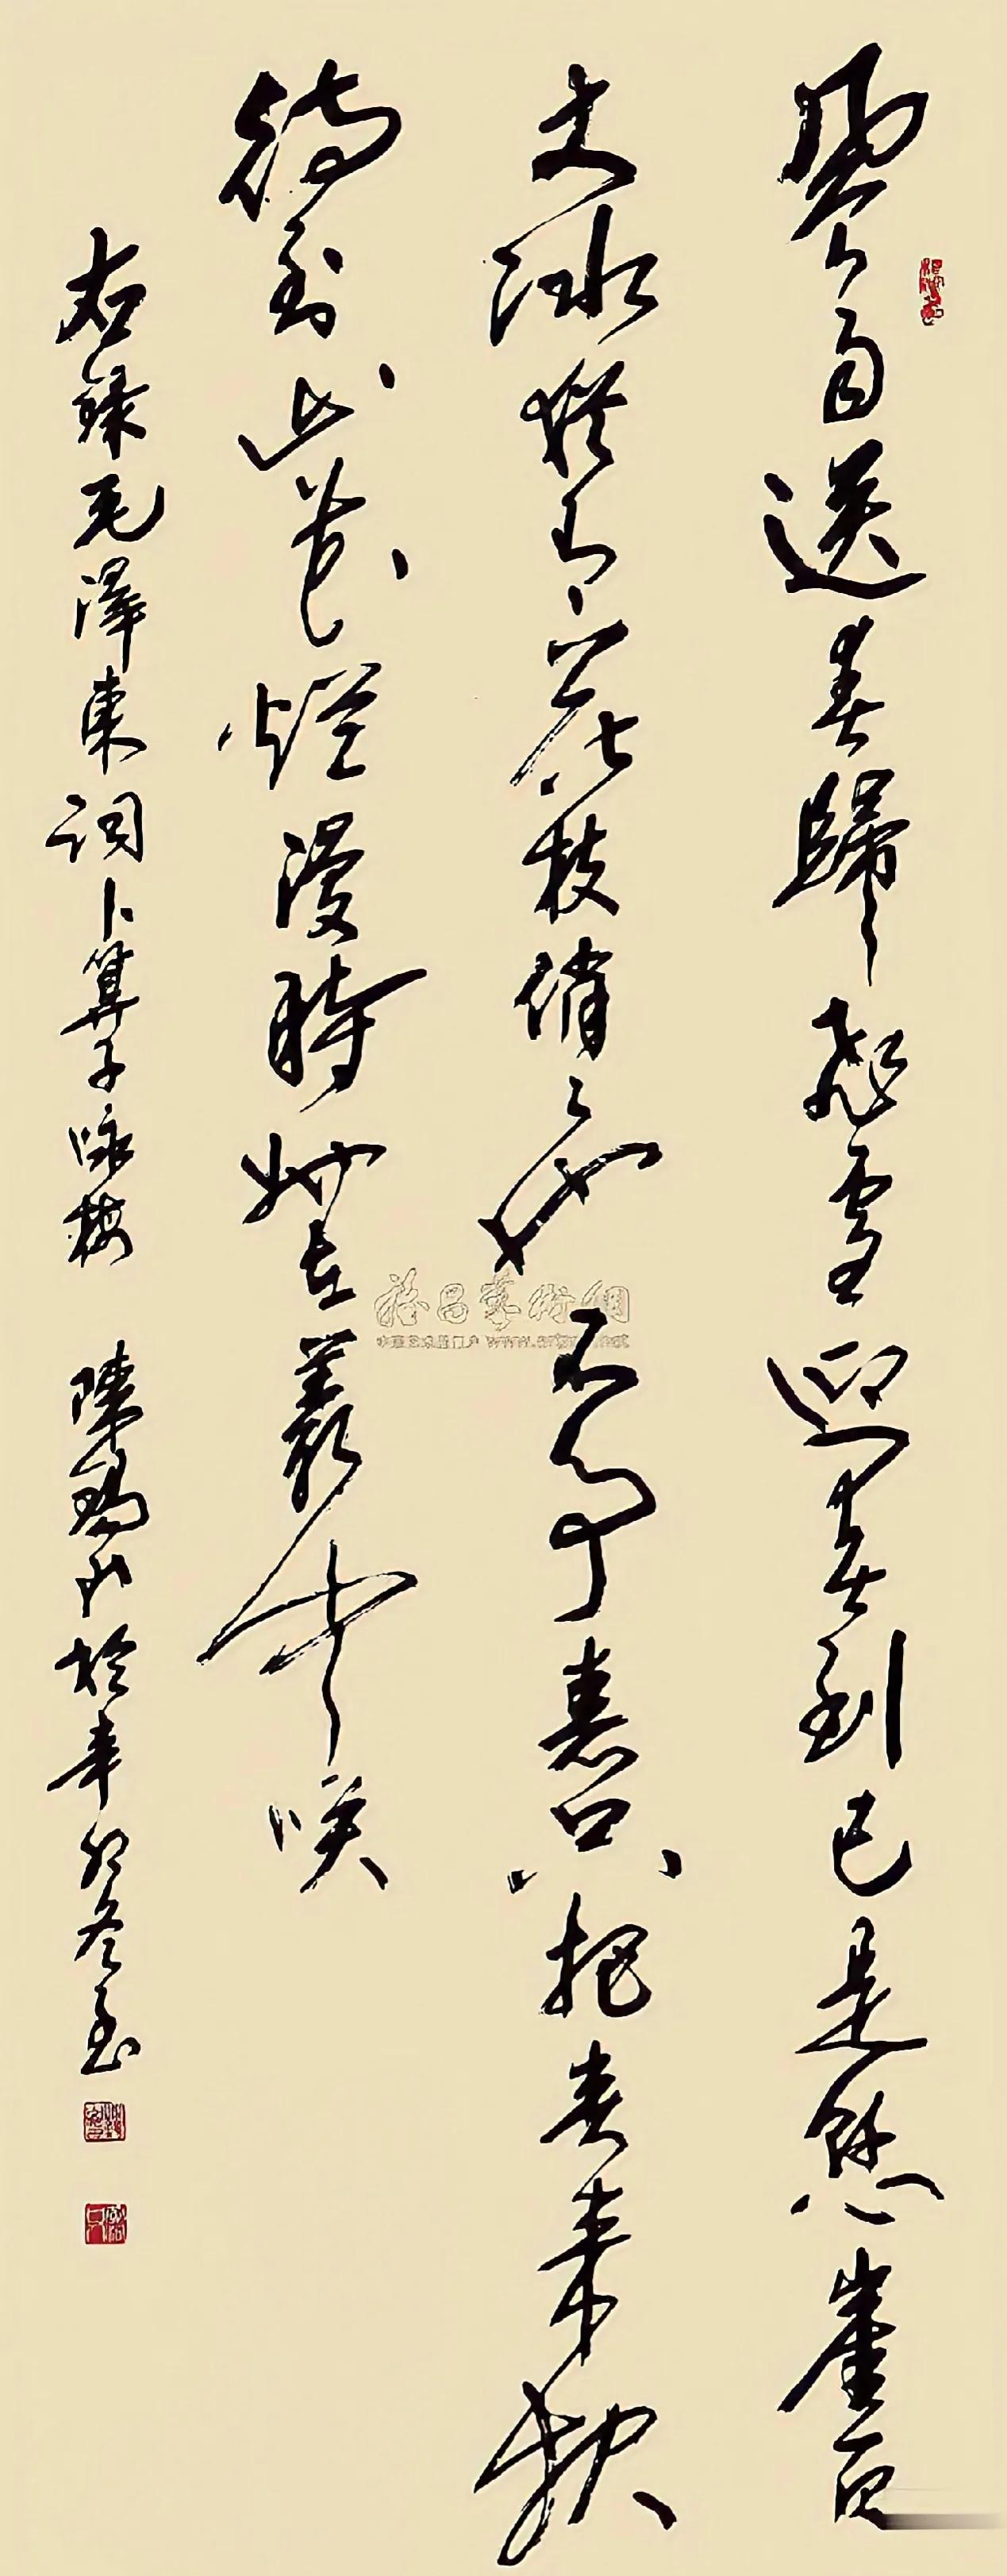 風雨送春歸飛雪迎春到已是懸崖百
丈冰猶有花枝俏々也不爭春只把春來報
待到山花爛漫時她在叢中咲
右錄毛澤東詞卜算子咏梅 陳錫於辛卯冬至
昌藝術網